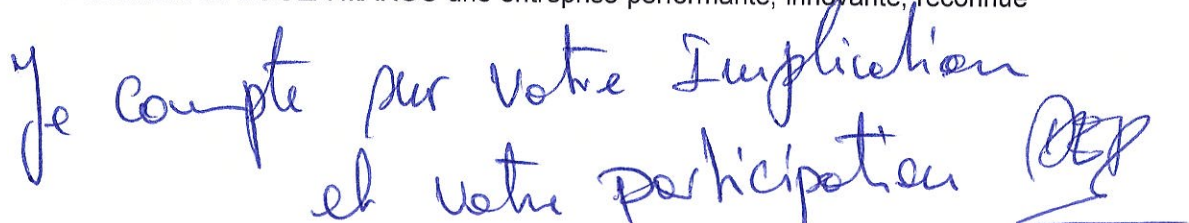 une entreprise performante, innovante, reconnue
Je compte sur votre Implication
et votre participation